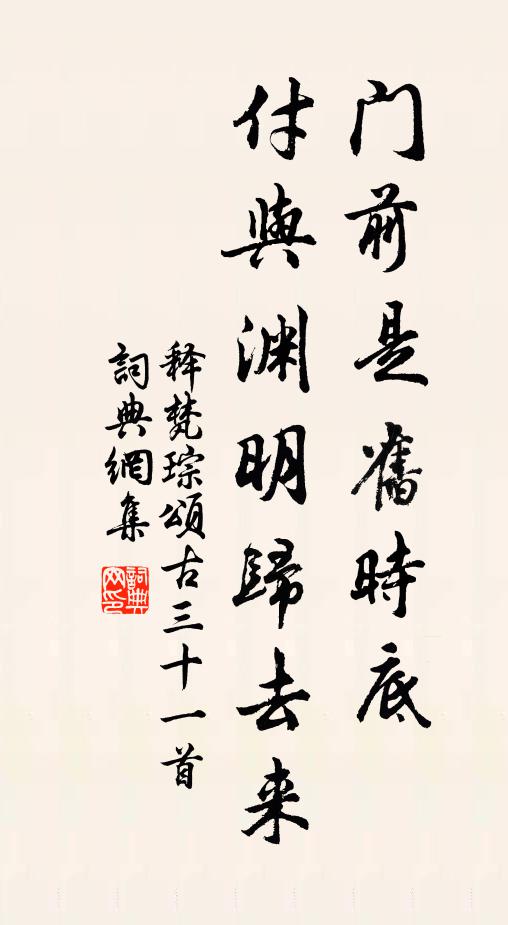 门前是舊時底
付與渊明歸去来
释梵琮頌古三十一首
詞典網集
詞典网印